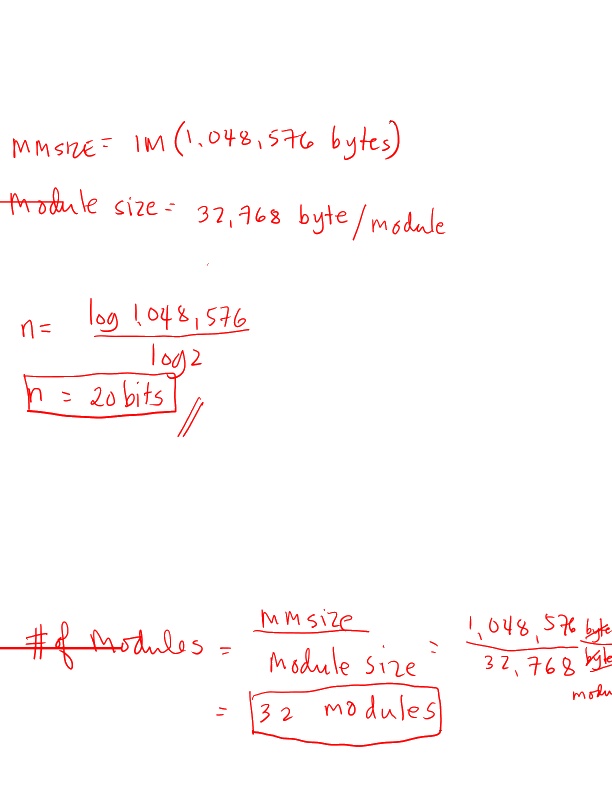 MMSIZE = 1M (1,048,576 bytes)
Module size = 32,768 byte/module
n = log 1,048,576
log 2
n = 20 bits
# of Modules = MMsize / Module size = 1,048,576 byte / 32,768 byte
modu
= 32 modules